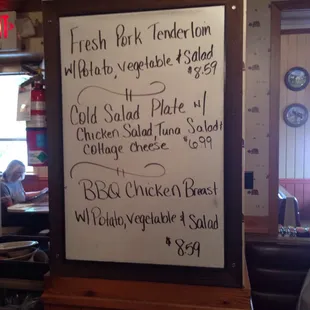 Fresh Pork Tenderloin
W/ Potato, vegetable & Salad
$8.59
Cold Salad Plate w/
Chicken Salad, Tuna Salad &
Cottage Cheese $6.99
BBQ Chicken Breast
W/ Potato, Vegetable & Salad
$8.59